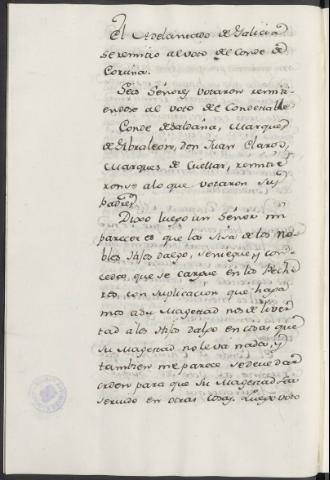 El Adelantado de Galicia
se remitio al voto del Conde de
Coruña.
Seis Señores votaron remiti-
endose al voto del Condestable
Conde de Saldaña, Marques
de Gibraleon, don Juan Claros,
Marques de Cuellar, remitie
ronse a lo que votaron sus
padres.
Dixo luego un Señor mi
parecer es que la Sisa de los no
bles Hijos dalgo, se niegue y con
cedo, que se cargue en los Peche
ros, con suplicacion que haga
mos a su Magestad nos de liber
tad a los Hijos dalgo en cosas que
su Magestad no lleva nada, y
tambien me parece se deve dar
orden para que su Magestad sea
servido en otras cosas. Luego voto